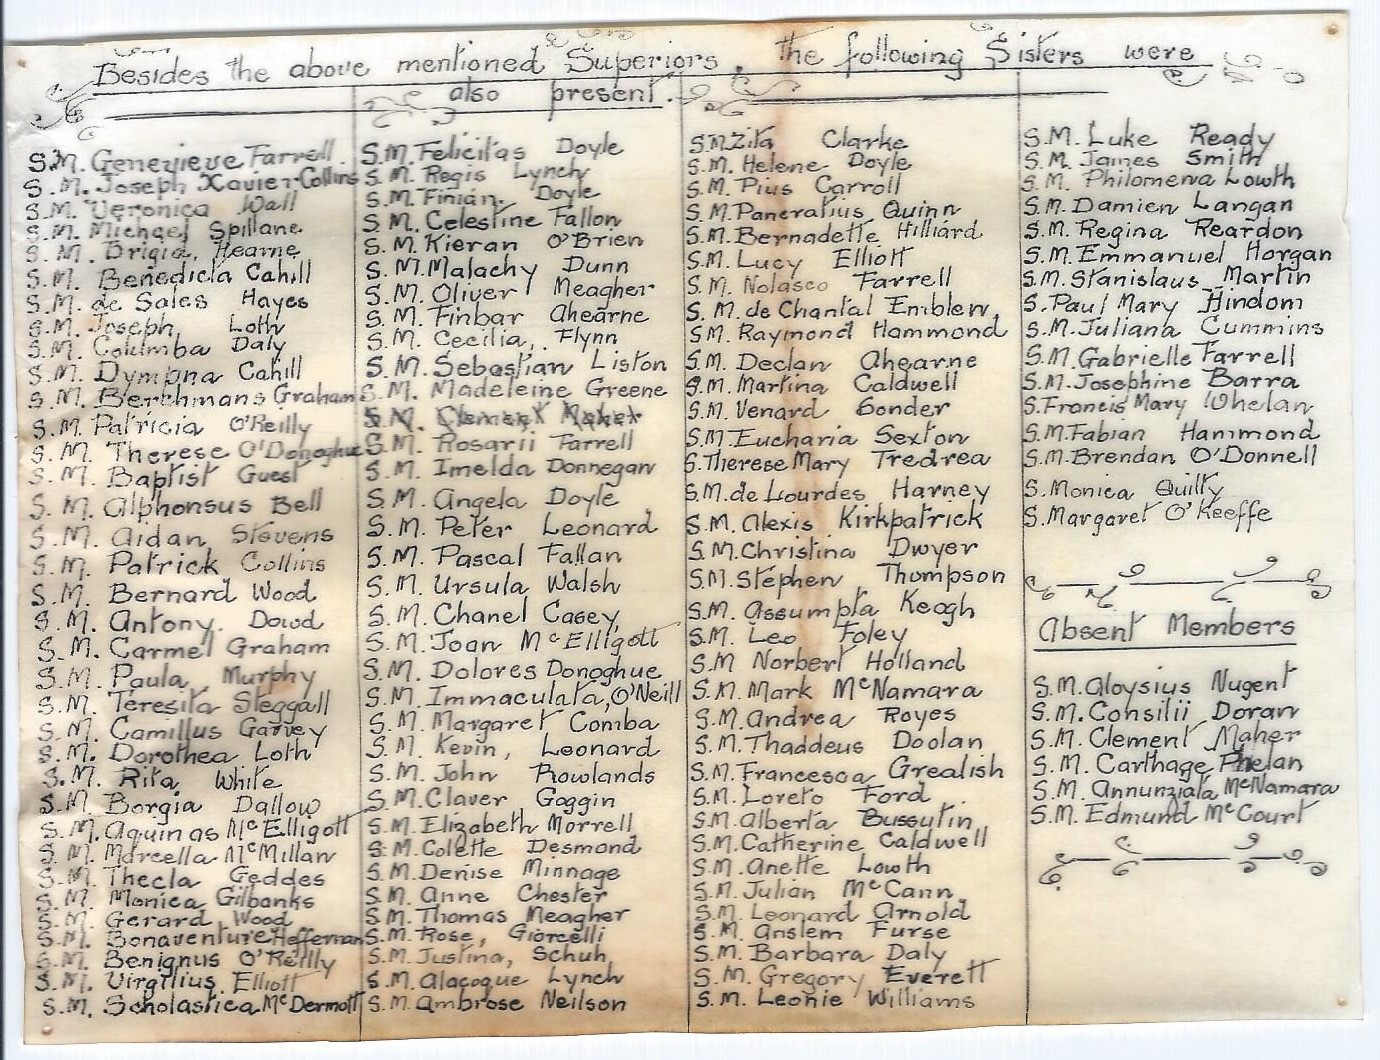 Besides the above mentioned Superiors, the following Sisters were
also present.
S.M. Genevieve Farrell
S.M. Joseph Xavier Collins
S.M. Veronica Wall
S.M. Michael Spillane
S.M. Brigid, Hearne
S.M. Benedicta Cahill
S.M. de Sales Hayes
S.M. Joseph, Loth
S.M. Columba Daly
S.M. Dympna Cahill
S.M. Berchmans Graham
S.M. Patricia O'Reilly
S.M. Therese O'Donoghue
S.M. Baptist Guest
S.M. Alphonsus Bell
S.M. Aidan Stevens
S.M. Patrick Collins
S.M. Bernard Wood
S.M. Antony. Dowd
S.M. Carmel Graham
S.M. Paula Murphy
S.M. Teresita Steggall
S.M. Camillus Garvey
S.M. Dorothea Loth
S.M. Rita White
S.M. Borgia Dallow
S.M. Aquinas McElligott
S.M. Marcella McMillan
S.M. Thecla Geddes
S.M. Monica Gilbanks
S.M. Gerard Wood
S.M. Bonaventure Heffernan
S.M. Benignus O'Reilly
S.M. Virgilius Elliott
S.M. Scholastica McDermott
S.M. Felicitas Doyle
S.M. Regis Lynch
S.M. Finian. Doyle
S.M. Celestine Fallon
S.M. Kieran O'Brien
S.M. Malachy Dunn
S.M. Oliver Meagher
S.M. Finbar Ahearne
S.M. Cecilia, Flynn
S.M. Sebastian Liston
S.M. Madeleine Greene
S.M. Clement Maher
S.M. Rosarii Farrell
S.M. Imelda Donnegan
S.M. Angela Doyle
S.M. Peter Leonard
S.M. Pascal Fallan
S.M. Ursula Walsh
S.M. Chanel Casey
S.M. Joan McElligott
S.M. Dolores Donoghue
S.M. Immaculata, O'Neill
S.M. Margaret Comba
S.M. Kevin, Leonard
S.M. John Rowlands
S.M. Claver Goggin
S.M. Elizabeth Morrell
S.M. Colette Desmond
S.M. Denise Minnage
S.M. Anne Chester
S.M. Thomas Meagher
S.M. Rose, Giorcelli
S.M. Justina, Schuh
S.M. Alacoque Lynch
S.M. Ambrose Neilson
S.M. Zita Clarke
S.M. Helene Doyle
S.M. Pius Carroll
S.M. Pancratius Quinn
S.M. Bernadette Hilliard
S.M. Lucy Elliott
S.M. Nolasco Farrell
S.M. de Chantal Emblen
S.M. Raymond Hammond
S.M. Declan Ahearne
S.M. Martina Caldwell
S.M. Venard Gonder
S.M. Eucharia Sexton
S. Therese Mary Tredrea
S.M. de Lourdes Harney
S.M. Alexis Kirkpatrick
S.M. Christina Dwyer
S.M. Stephen Thompson
S.M. Assumpta Keogh
S.M. Leo Foley
S.M Norbert Holland
S.M. Mark McNamara
S.M. Andrea Royes
S.M. Thaddeus Doolan
S.M. Francesca Grealish
S.M. Loreto Ford
S.M. Alberta Bussutin
S.M. Catherine Caldwell
S.M. Anette Lowth
S.M. Julian McCann
S.M. Leonard Arnold
S.M. Anslem Furse
S.M. Barbara Daly
S.M. Gregory Everett
S.M. Leonie Williams
S.M. Luke Ready
S.M. James Smith
S.M. Philomena Lowth
S.M. Damien Langan
S.M. Regina Reardon
S.M. Emmanuel Horgan
S.M. Stanislaus Martin
S. Paul Mary Hindom
S.M. Juliana Cummins
S.M. Gabrielle Farrell
S.M. Josephine Barra
S. Francis Mary Whelan
S.M. Fabian Hammond
S.M. Brendan O'Donnell
S. Monica Quilty
S. Margaret O'Keeffe
Absent Members
S.M. Aloysius Nugent
S.M. Consilii Doran
S.M. Clement Maher
S.M. Carthage Phelan
S.M. Annunziata McNamara
S.M. Edmund McCourt